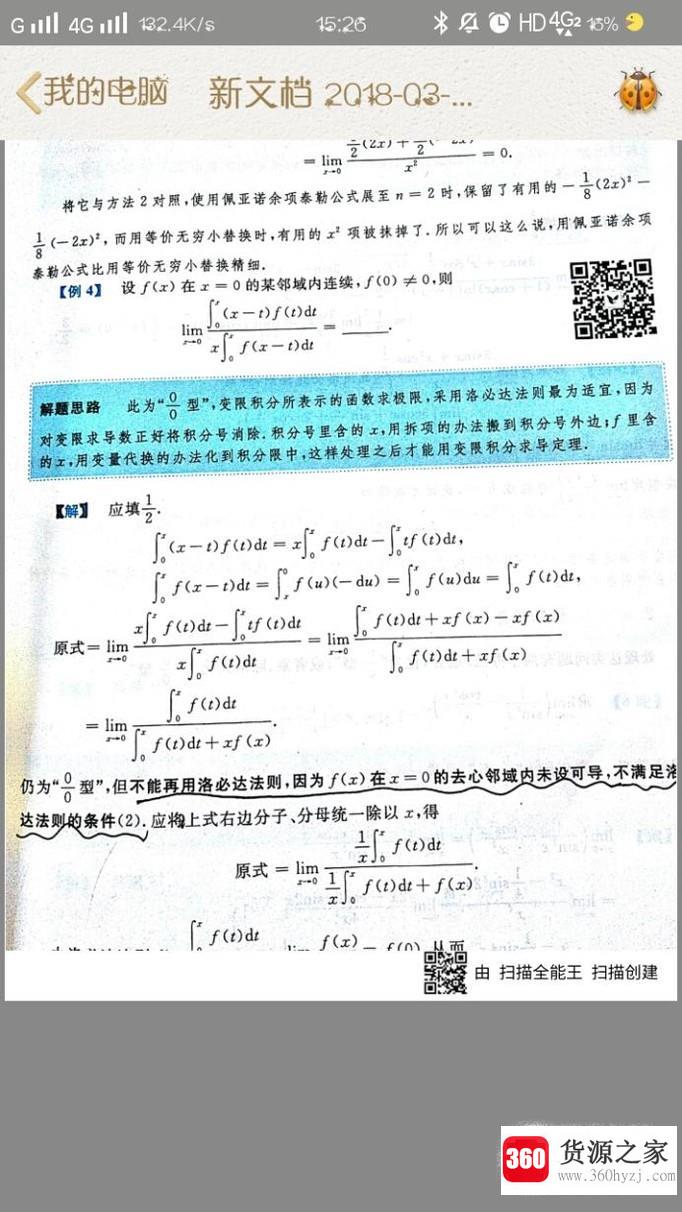 G 4G 132.4K/s 15:26 HD 4G2 16%
我的电脑 新文档 2018-03-...
= lim x→0 = 0.
将它与方法 2 对照,使用佩亚诺余项泰勒公式展至 n = 2 时,保留了有用的 − 1/8 (2x)² −
1/8 (−2x)², 而用等价无穷小替换时,有用的 x² 项被抹掉了. 所以可以这么说,用佩亚诺余项
泰勒公式比用等价无穷小替换精细.
【例 4】 设 f(x) 在 x = 0 的某邻域内连续, f(0) ≠ 0, 则
lim x→0 ∫₀ˣ (x−t)f(t)dt / x∫₀ˣ f(x−t)dt = ____.
解题思路 此为“0/0 型”,变限积分所表示的函数求极限,采用洛必达法则最为适宜,因为
对变限求导数正好将积分号消除. 积分号里含的 x,用拆项的办法搬到积分号外边; f 里含
的 x,用变量代换的办法化到积分限中,这样处理之后才能用变限积分求导定理.
【解】 应填 1/2.
∫₀ˣ (x−t)f(t)dt = x∫₀ˣ f(t)dt − ∫₀ˣ tf(t)dt,
∫₀ˣ f(x−t)dt = ∫ₓ⁰ f(u)(−du) = ∫₀ˣ f(u)du = ∫₀ˣ f(t)dt,
原式 = lim x→0 x∫₀ˣ f(t)dt − ∫₀ˣ tf(t)dt / x∫₀ˣ f(t)dt = lim x→0 ∫₀ˣ f(t)dt + xf(x) − xf(x) / ∫₀ˣ f(t)dt + xf(x)
= lim x→0 ∫₀ˣ f(t)dt / ∫₀ˣ f(t)dt + xf(x).
仍为“0/0 型”,但不能再用洛必达法则,因为 f(x) 在 x = 0 的去心邻域内未设可导,不满足洛
达法则的条件(2). 应将上式右边分子、分母统一除以 x,得
原式 = lim x→0 1/x ∫₀ˣ f(t)dt / 1/x ∫₀ˣ f(t)dt + f(x).
∫₀ˣ f(t)dt lim f(x) = f(0), 从而
由 扫描全能王 扫描创建
360 货源之家
www.360hyzj.com